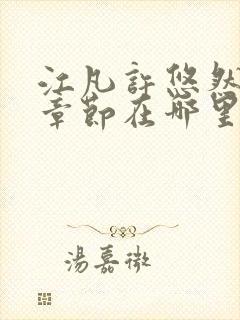 江凡許悠然
章節在哪里
湯嘉微